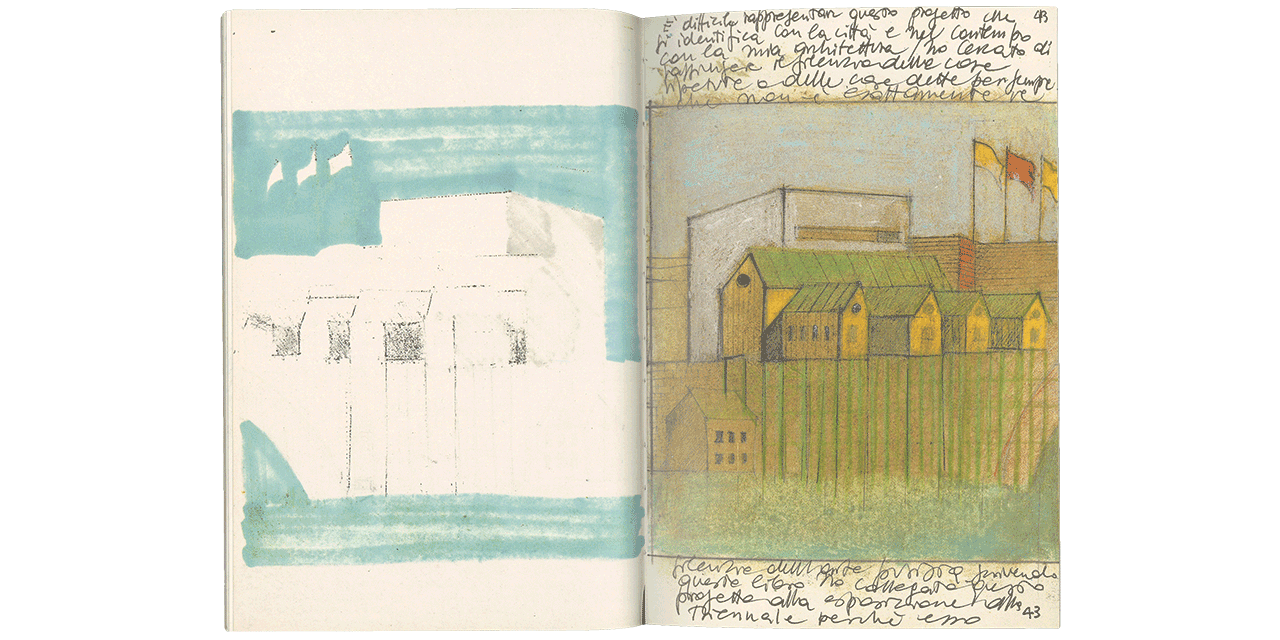 È difficile rappresentare questo progetto che 43
si identifica con la città e nel contempo
con la mia architettura / ho cercato di
raggiungere il silenzio delle cose
ripetute o delle cose dette per sempre
che non è esattamente il
silenzio dell'arte scrivendo
questo libro ho collegato questo
progetto alla esposizione alla 43
Triennale perché esso